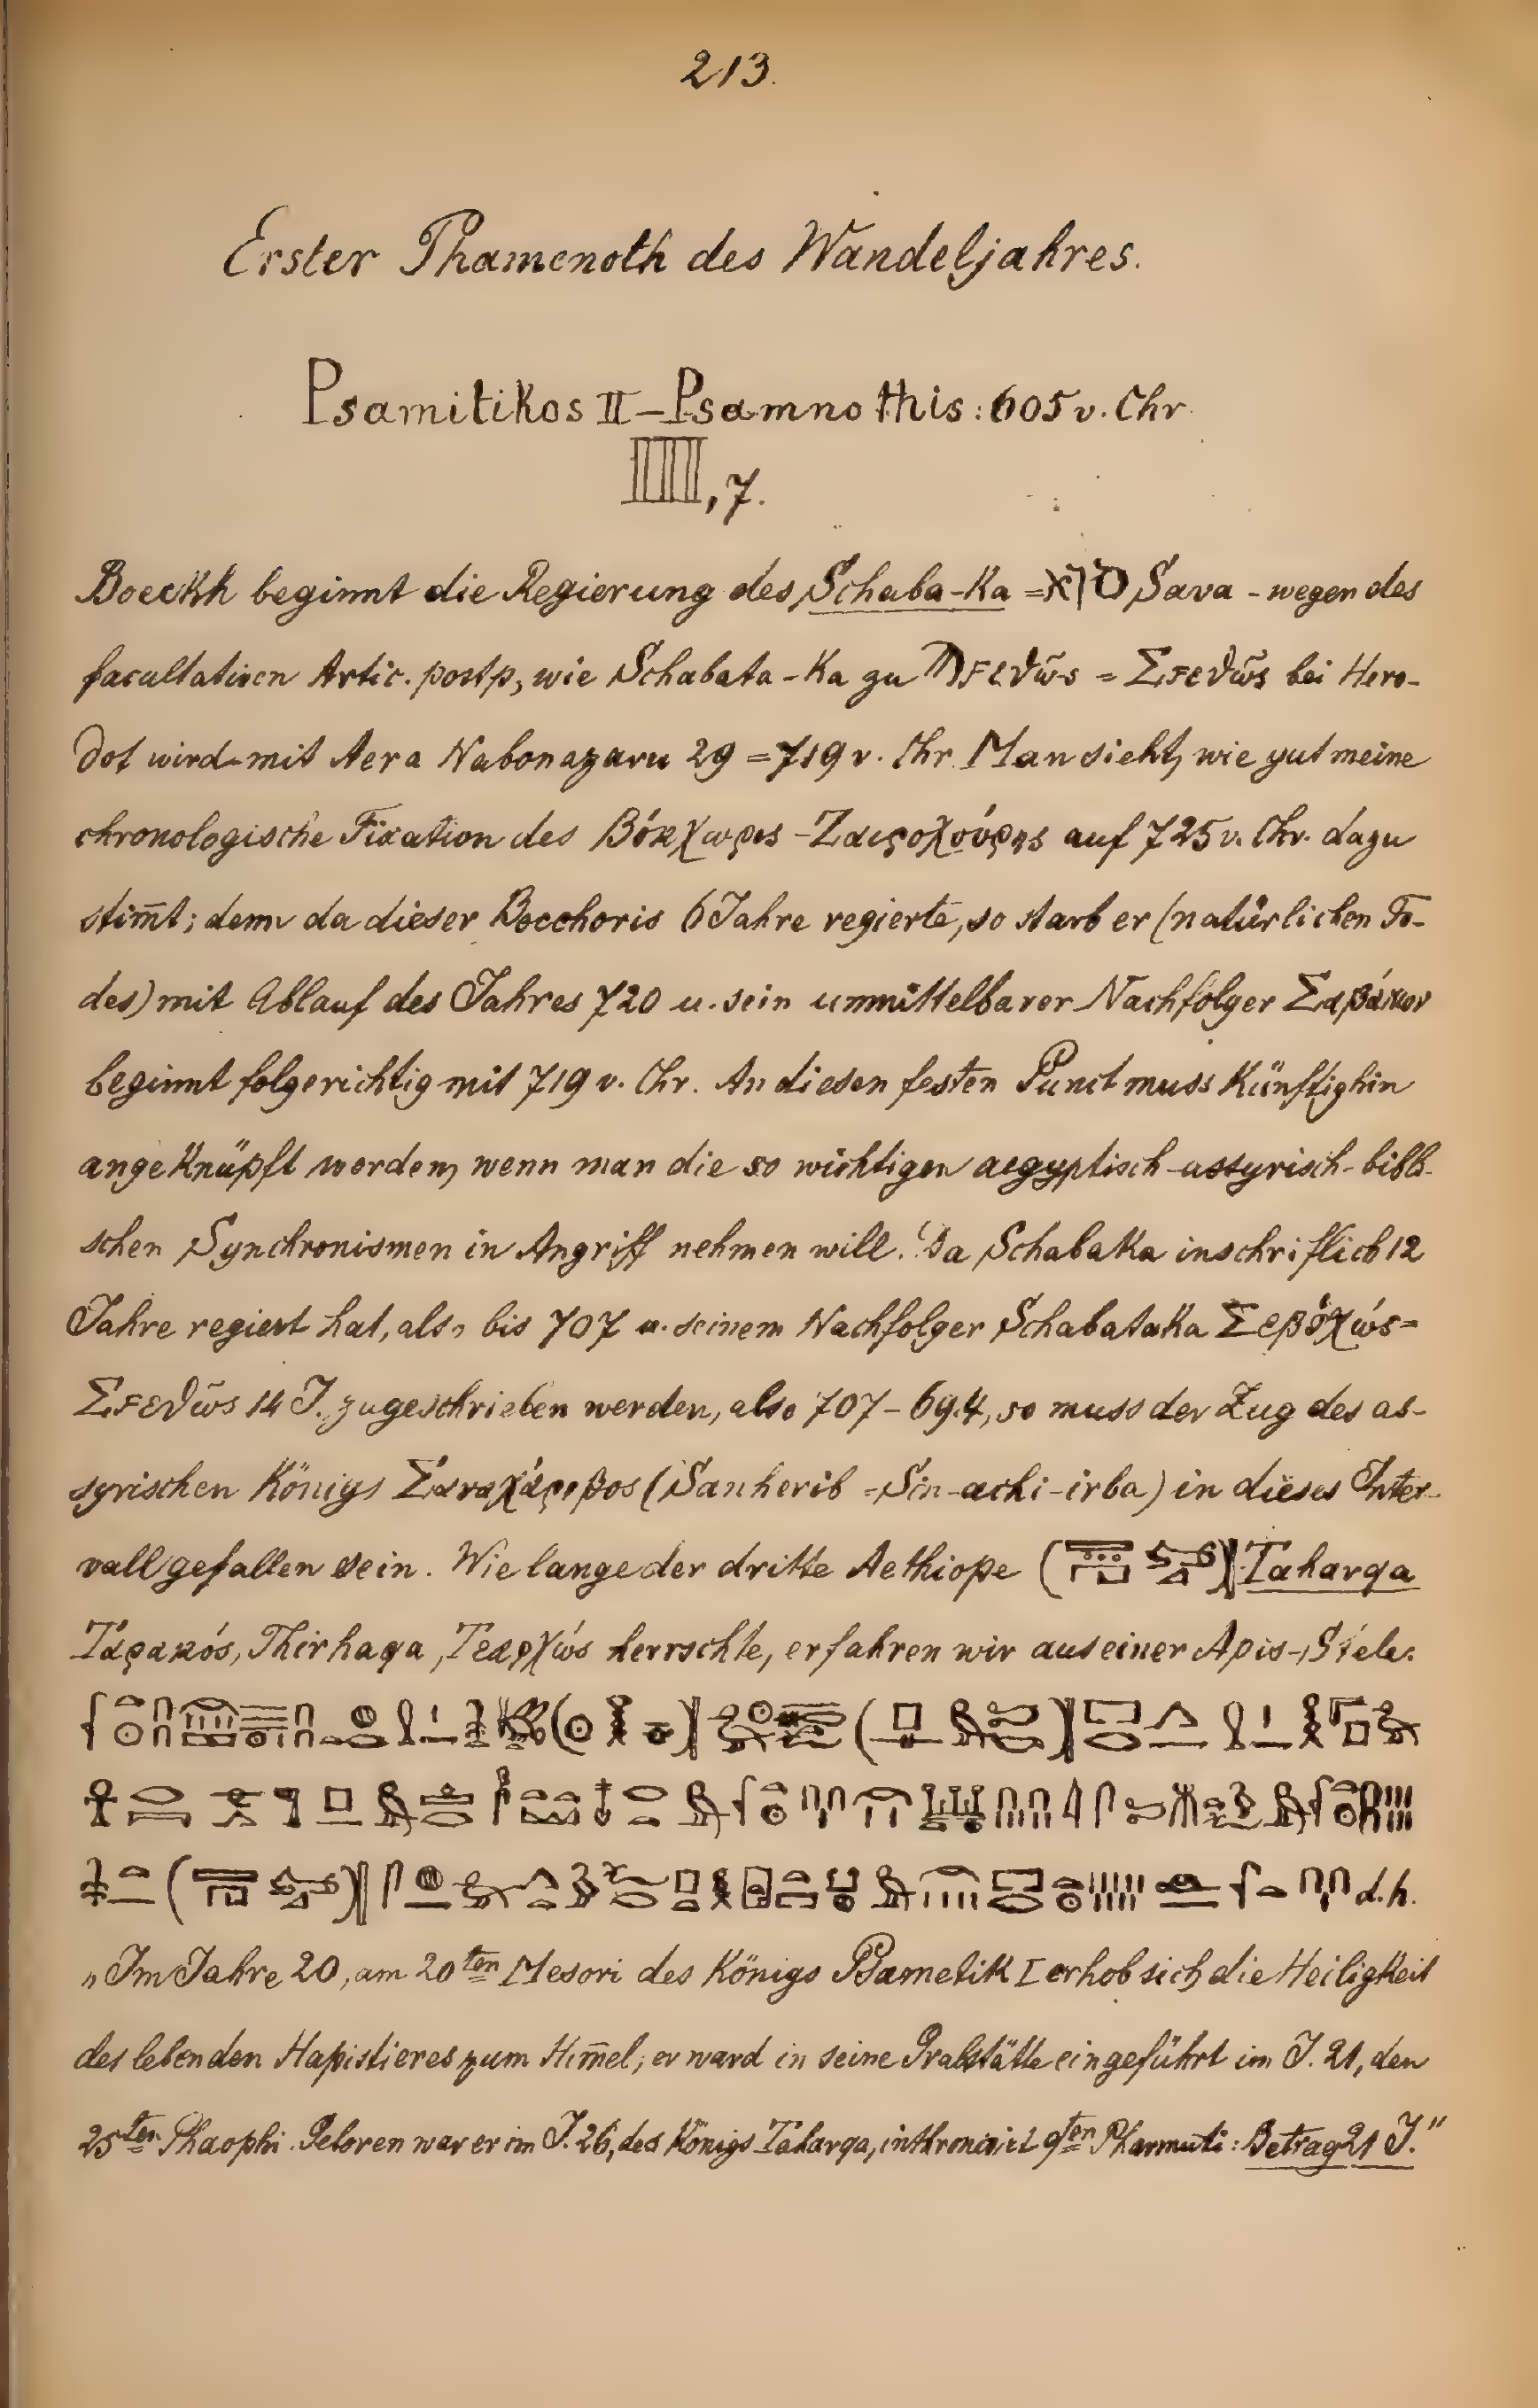 213.
Erster Phamenoth des Wandeljahres.
Psamitikos II – Psamnothis: 605 v. Chr.
IIIII, 7.
Boeckh beginnt die Regierung des Schaba-Ka = סוא Sava - wegen des
facultativen Artic. postp, wie Schabata-Ka zu = Σεϑῶς bei Hero-
dot wird - mit Aera Nabonazaru 29 = 719 v. Chr. Man sieht, wie gut meine
chronologische Fixation des Βόκχωρις - auf 725 v. Chr. dazu
stim̄t; denn da dieser Bocchoris 6 Jahre regierte, so starb er (natürlichen To-
des) mit Ablauf des Jahres 720 u. sein unmittelbarer Nachfolger Σαβάκων
beginnt folgerichtig mit 719 v. Chr. An diesen festen Punct muss Künftighin
angeKnüpft werden, wenn man die so wichtigen aegyptisch-assyrisch-bibli-
schen Synchronismen in Angriff nehmen will. Da SchabaKa inschriftlich 12
Jahre regiert hat, also bis 707 u. seinem Nachfolger Schabataka Σεβιχώς =
14 J. zugeschrieben werden, also 707 – 694, so muss der Zug des as-
syrischen Königs Σαναχάριβος (Sanherib = Sin-achi-irba) in dieses Inter-
vall gefallen sein. Wie lange der dritte Aethiope Taharqa
Ταρακός, Thirhaqa, Τεαρχώς herrschte, erfahren wir aus einer Apis-Stele.
d. h.
„Im Jahre 20, am 20ten Mesori des Königs Psametik I erhob sich die Heiligkeit
des lebenden Hapistieres zum Him̄el; er ward in seine Grabstätte eingeführt im J. 21, den
25ten Phaophi. Geboren war er im J. 26, des Königs Taharqa, inthronisirt 9ten Pharmuti: Betrag 21 J."